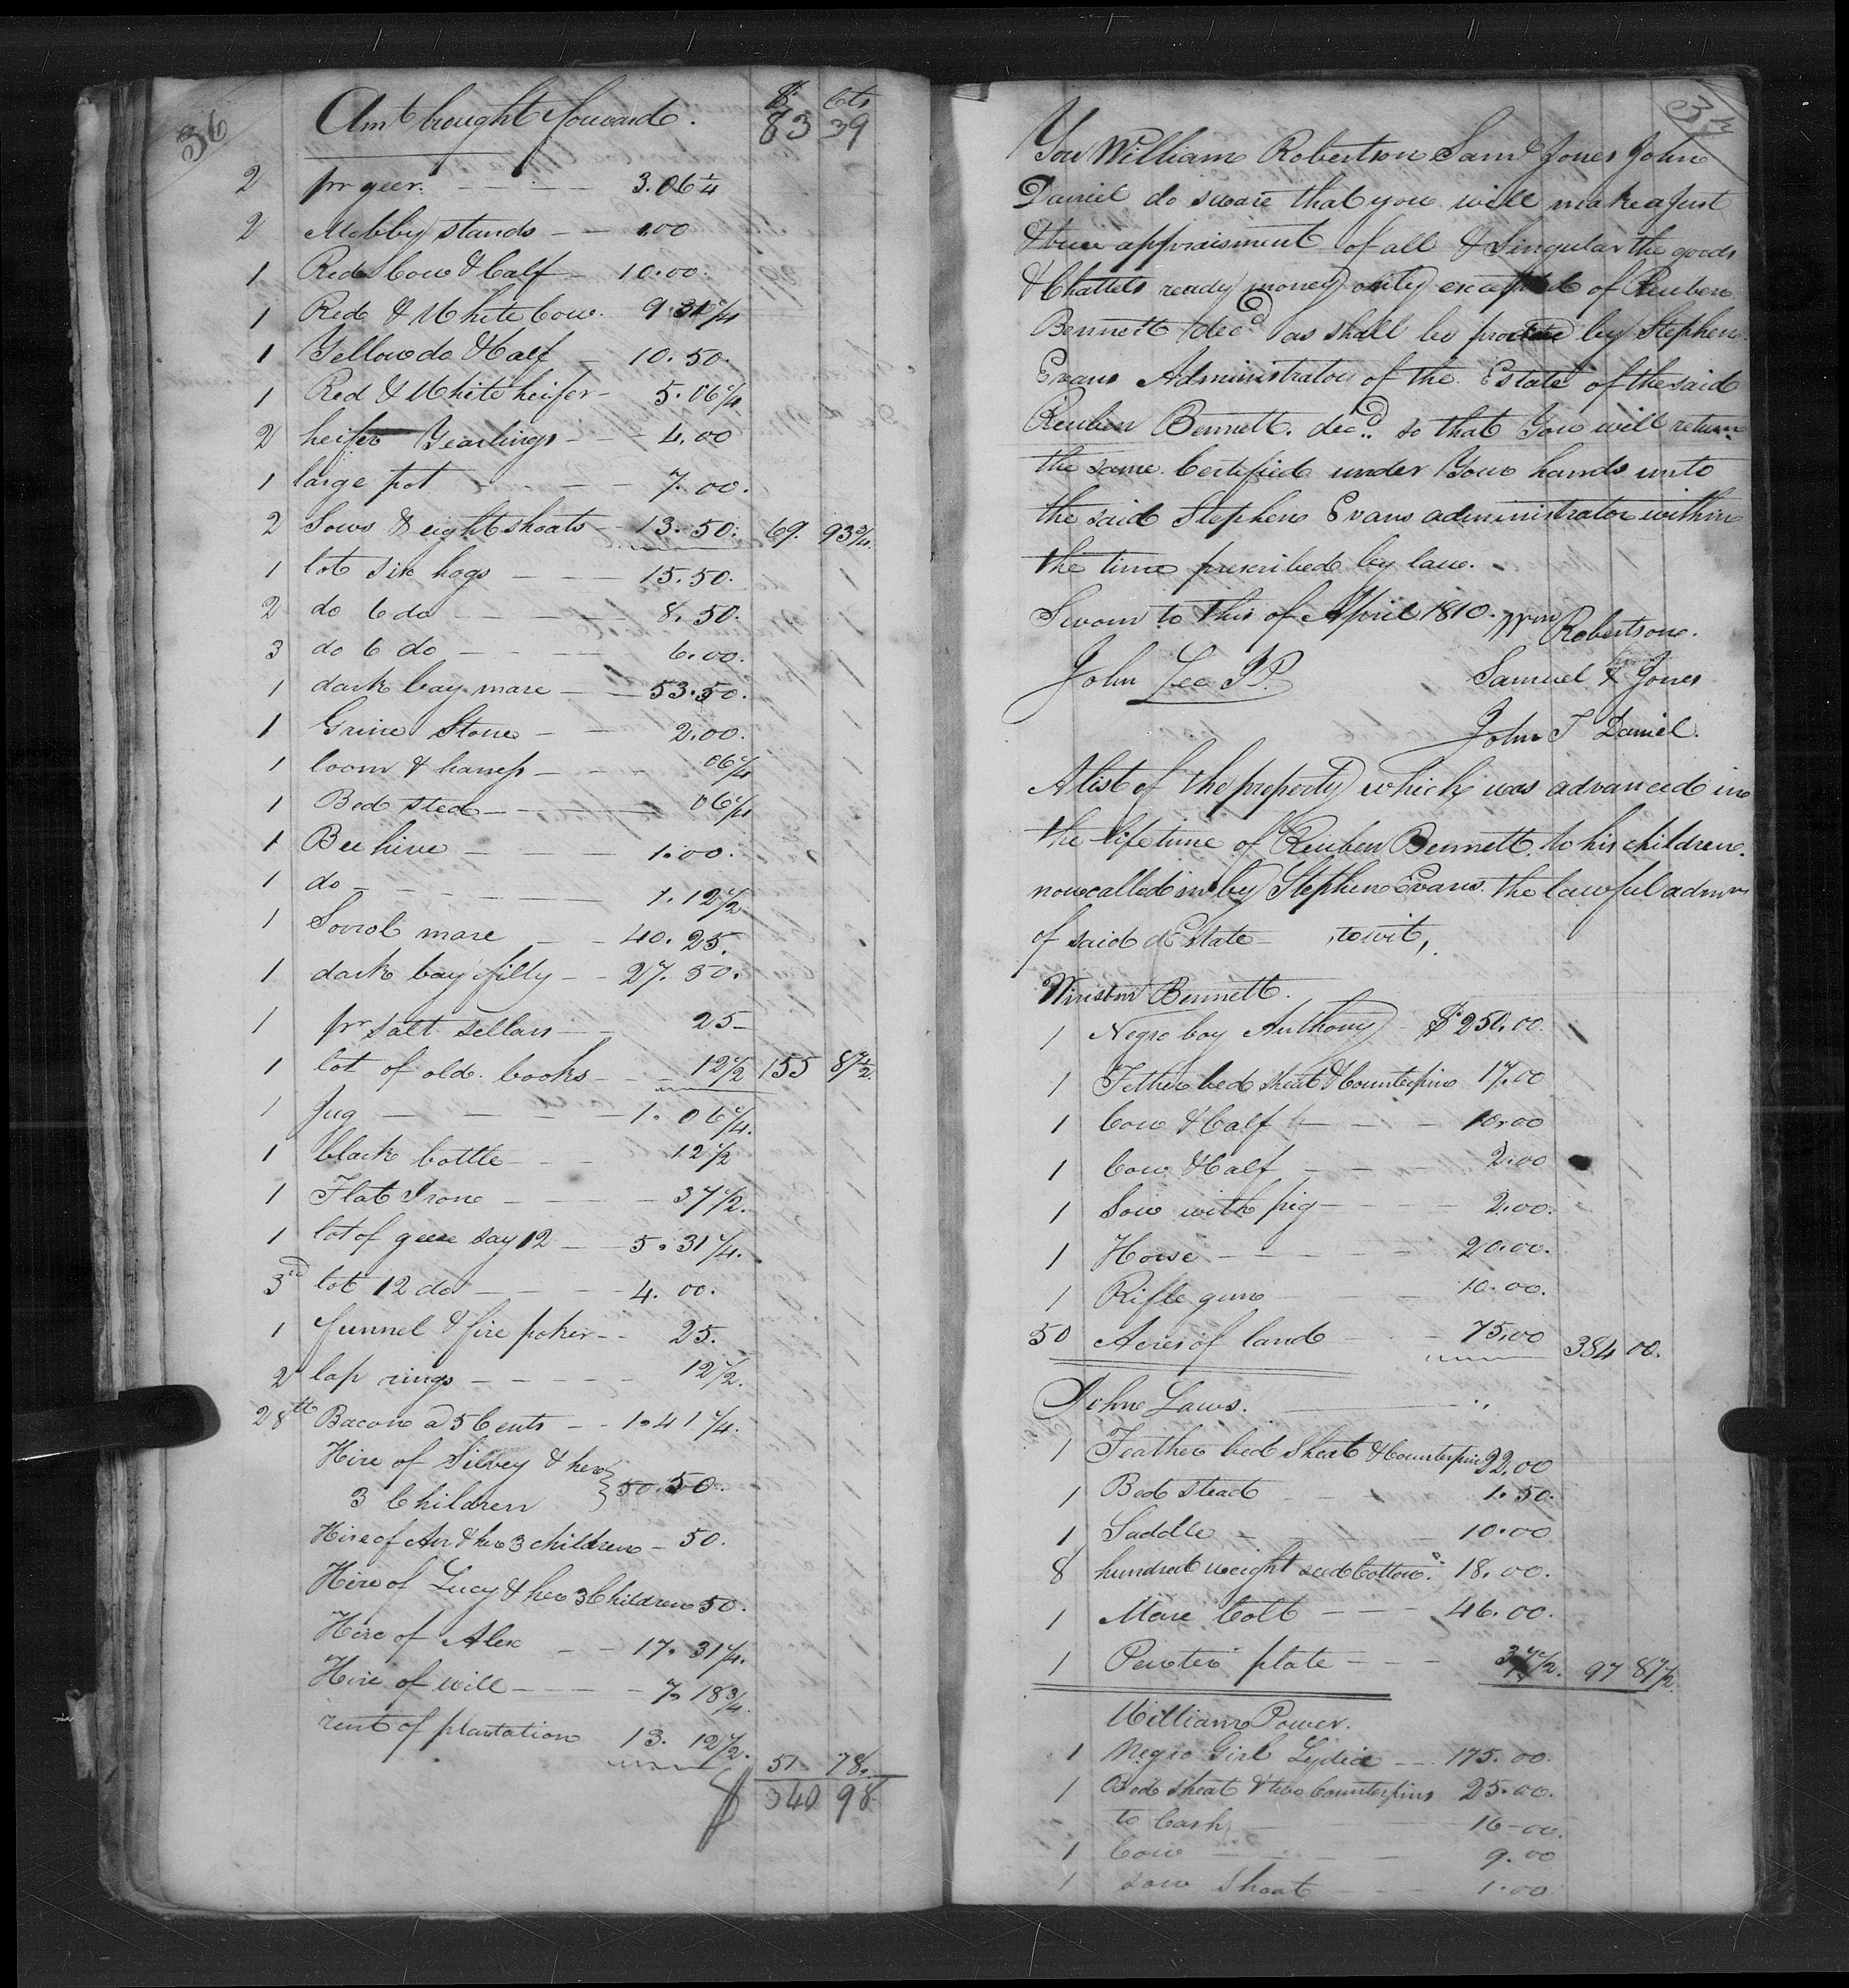 36
Amt brought forward. $ Cts
83 39
2 pr geer. 3.06 1/4
2 Mobby stands 1.00
1 Red Cow & Calf 10.00.
1 Red & White Cow. 9.31 1/4
1 Yellow do & Calf 10.50.
1 Red & White heifer 5.06 1/4
2 heifer Yearlings 4.00
1 large pot 7.00.
2 Sows & eight shoats 13.50. 69. 93 3/4.
1 lot six hogs 15.50.
2 do 6 do 8.50.
3 do 6 do 6.00.
1 dark bay mare 53.50.
1 Grine Stone 2.00.
1 loom & harness 06 1/4
1 Bed sted 06 1/4
1 Bee hive 1.00.
1 do 1.12 1/2
1 Sorrol mare 40.25.
1 dark bay filly 27.50.
1 pr salt sellars 25
1 lot of old books 12 1/2 155 87 1/2.
1 Jug 1.06 1/4.
1 black bottle 12 1/2
1 Flat Iron 37 1/2.
1 lot of geese say 12 5.31 1/4.
3rd lot 12 do 4.00.
1 funnel & fire poker 25.
2 lap rings 12 1/2.
28 lb Bacon a 5 Cents 1.41 1/4.
Hire of Silvey & her
3 Children } 50.50.
Hire of An & her 3 children 50.
Hire of Lucy & her 3 Children 50.
Hire of Alex 17.31 1/4.
Hire of will 7.18 3/4.
rent of plantation 13.12 1/2.
51 78.
$ 340 98.
37
You William Robertson Saml Jones John
Daniel do sware that you will make a just
& true appraisment of all & Singular the goods
& Chattels ready money only of Reuben
Bennett decd as shall be by Stephen
Evans Administrator of the Estate of the said
Reuben Bennett. decd. so that You will return
the same Certified under Your hands unto
the said Stephen Evans administrator within
the time prescribed by law.
Sworn to this of April 1810. Wm Robertson.
John Lee J.P. Samuel X Jones
John T Daniel.
A list of the property which was advanced in
the lifetime of Reuben Bennett to his children.
now called in by Stephen Evans. the lawful admr
of said Estate towit,
Winston Bennett.
1 Negro boy Anthony $250.00.
1 Fether bed sheat & Counterpin 17.00
1 Cow & Calf 10.00
1 Cow & Calf 2.00
1 Sow with pig 2.00.
1 Horse 20.00.
1 Rifle gun 10.00.
50 Acres of land 75.00 384 00.
John Laws.
1 Feather bed Sheat & Counterpin 22.00
1 Bed stead 1.50.
1 Saddle 10.00
8 hundred weight seed Cotton. 18.00.
1 Mare Colt 46.00.
1 Pewter plate 37 1/2. 97 87 1/2.
William Power.
1 Negro Girl Lydia 175.00.
1 Bed sheat & two Counterpins 25.00.
to Cash 16-00.
1 Cow 9.00
1 sow Shoat 1.00